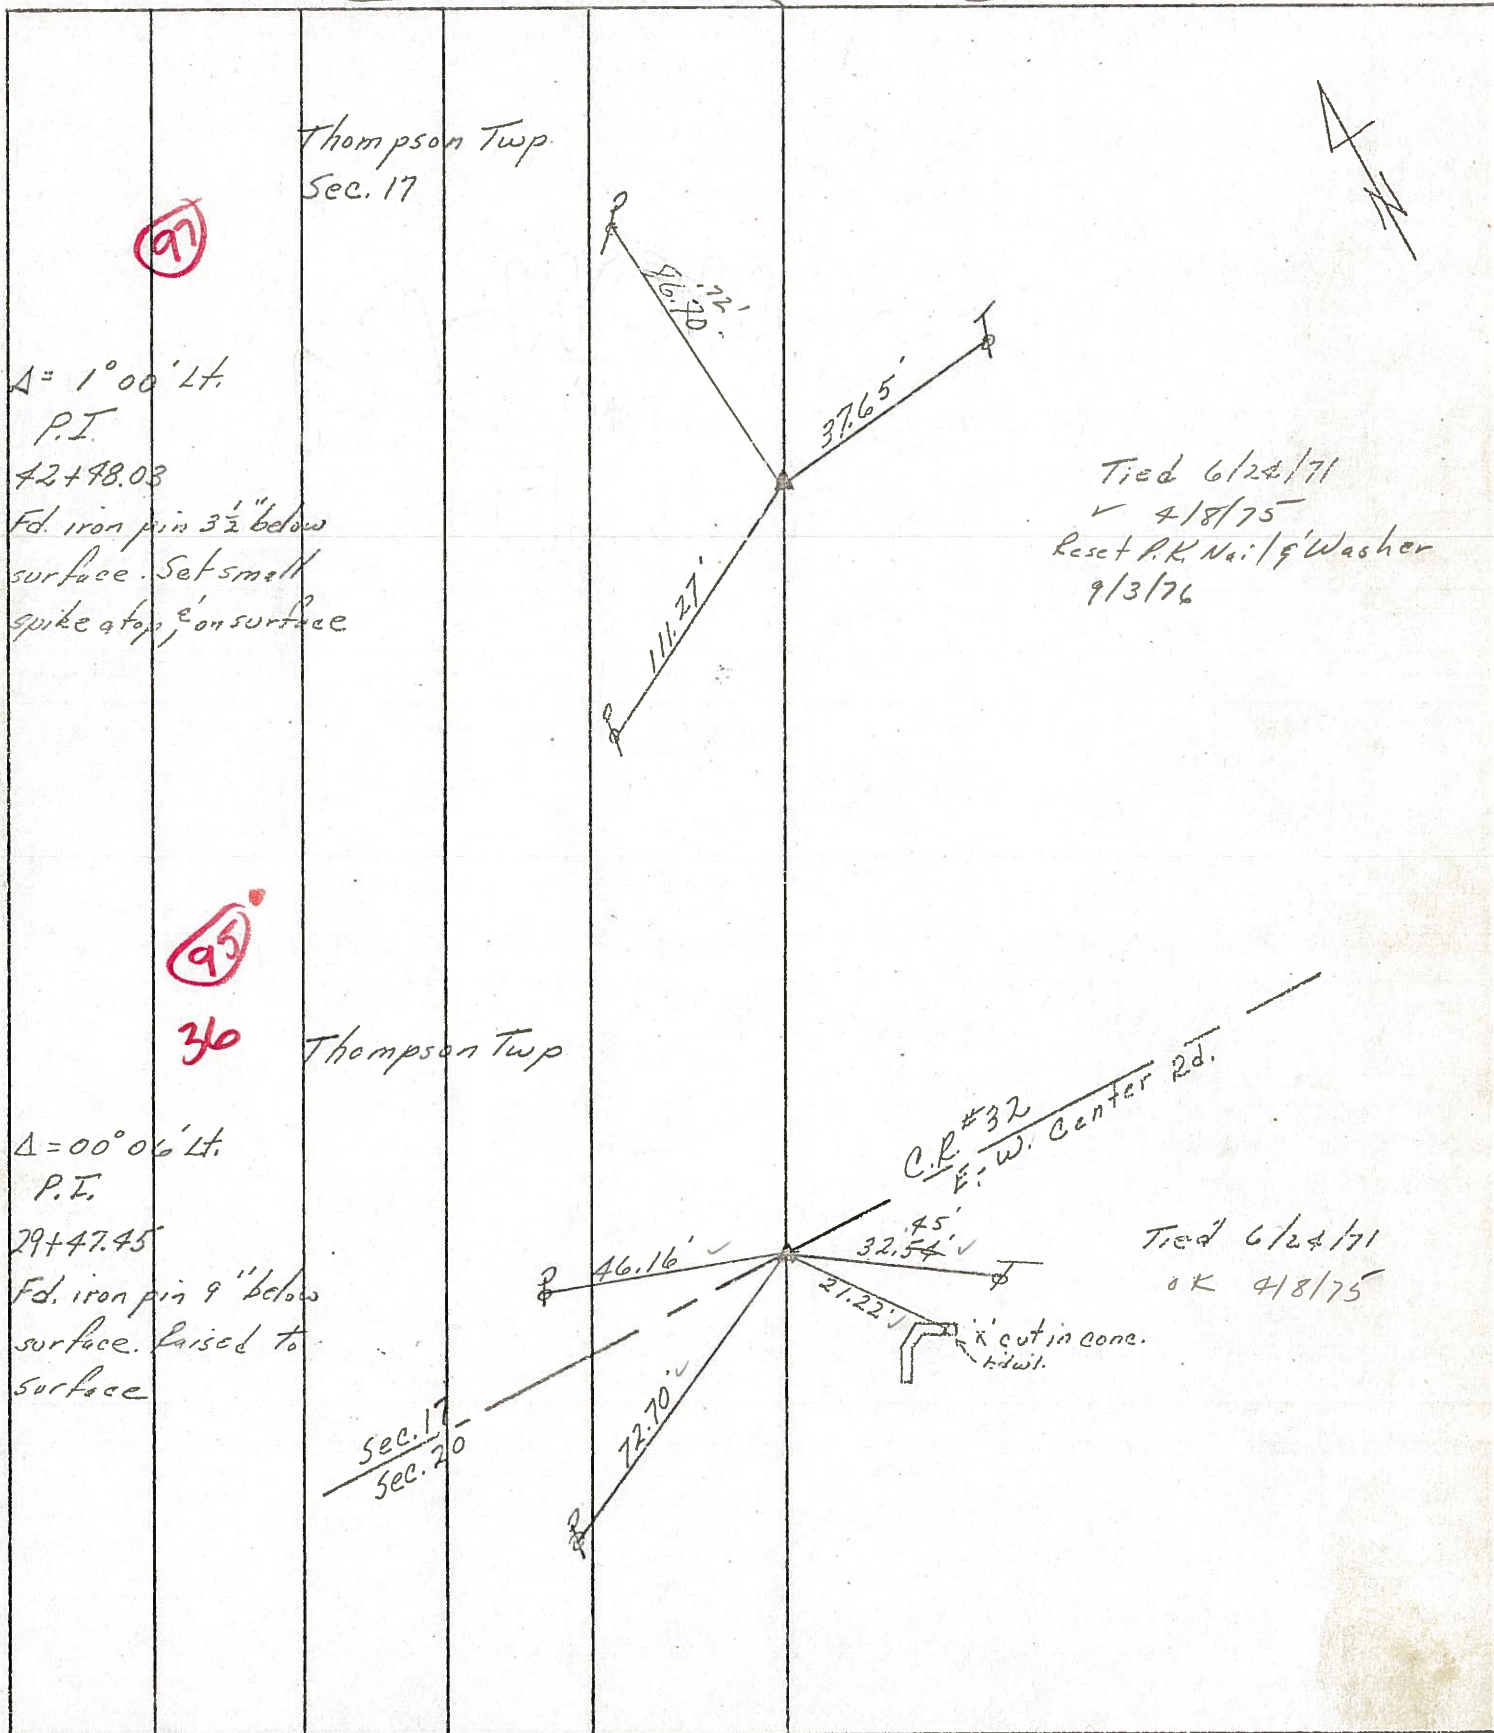 Thompson Twp.
Sec. 17
97
Δ = 1°00' Lt.
P.I.
42+48.03
Fd. iron pin 3½" below
surface. Set small
spike atop, & on surface
.72'
86.70
37.65'
111.27'
Tied 6/24/71
✓ 4/8/75
Reset P.K. Nail & Washer
9/3/76
N
95
36
Thompson Twp
Δ = 00°06' Lt.
P.I.
29+47.45
Fd. iron pin 9" below
surface. Raised to
surface
C.R. #32
E.-W. Center Rd.
46.16' ✓
.45'
32.54' ✓
21.22' ✓
72.70' ✓
'x' cut in conc.
hdwl.
Tied 6/24/71
OK 4/8/75
Sec. 17
Sec. 20